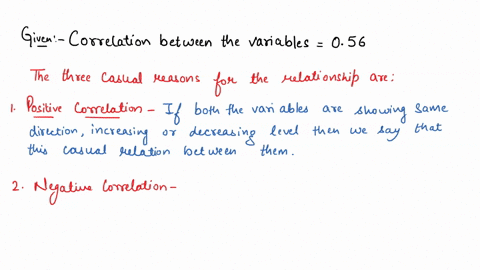 Given:- Correlation between the variables = 0.56
The three casual reasons for the relationship are:
1. Positive Correlation - If both the variables are showing same
direction, increasing or decreasing level then we say that
this casual relation between them.
2. Negative Correlation -